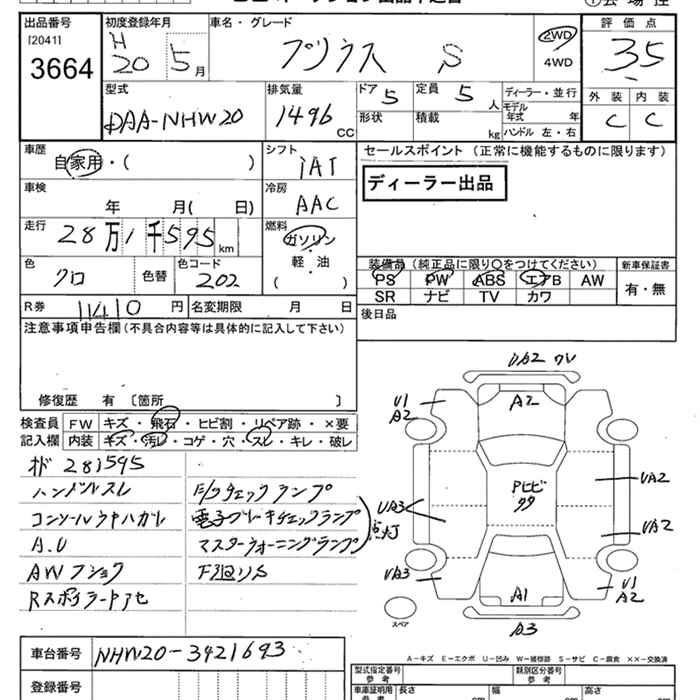 出品番号 初度登録年月 車名・グレード 評価点
[2041] H
3664 20 5月 プリウス S 2WD 35
4WD
型式 排気量 ドア 5 定員 5人 ディーラー・並行 外装 内装
DAA-NHW20 1496 CC 形状 積載 kg モデル年式 年 C C
ハンドル 左・右
車歴 シフト セールスポイント(正常に機能するものに限ります)
自家用・( ) IAT
ディーラー出品
車検 冷房
年 月( 日) AAC
走行 燃料
28万1千595km ガソリン
軽・油
( )
色 クロ 色替 色コード 202
装備品(純正品に限り〇をつけてください) 新車保証書
PS PW ABS エアB AW 有・無
SR ナビ TV カワ
R券 11410円 名変期限 月 日 後日品
注意事項申告欄(不具合内容等は具体的に記入して下さい)
修復歴 有 〔箇所 〕
検査員 FW キズ・飛石・ヒビ割・リペア跡・×要
記入欄 内装 キズ・汚レ・コゲ・穴・スレ・キレ・破レ
281595
ハンドルスレ
コンソールウチハガレ
A.U
AWフショク
Rスポイラー
E/Gチェックランプ
電子ブレーキチェックランプ
マスターウォーニングランプ
点灯
UA2
U1
A2
A2
UA2
UA3
UA2
UA3
U1
A2
A1
スペア
A-キズ E-エクボ U-凹み W-補修跡 S-サビ C-腐食 ××-交換済
車台番号 NHW20-3421693
型式指定番号 類別区分番号
参考 参考
登録番号 車庫証明用 長さ 幅 高さ
参考 cm